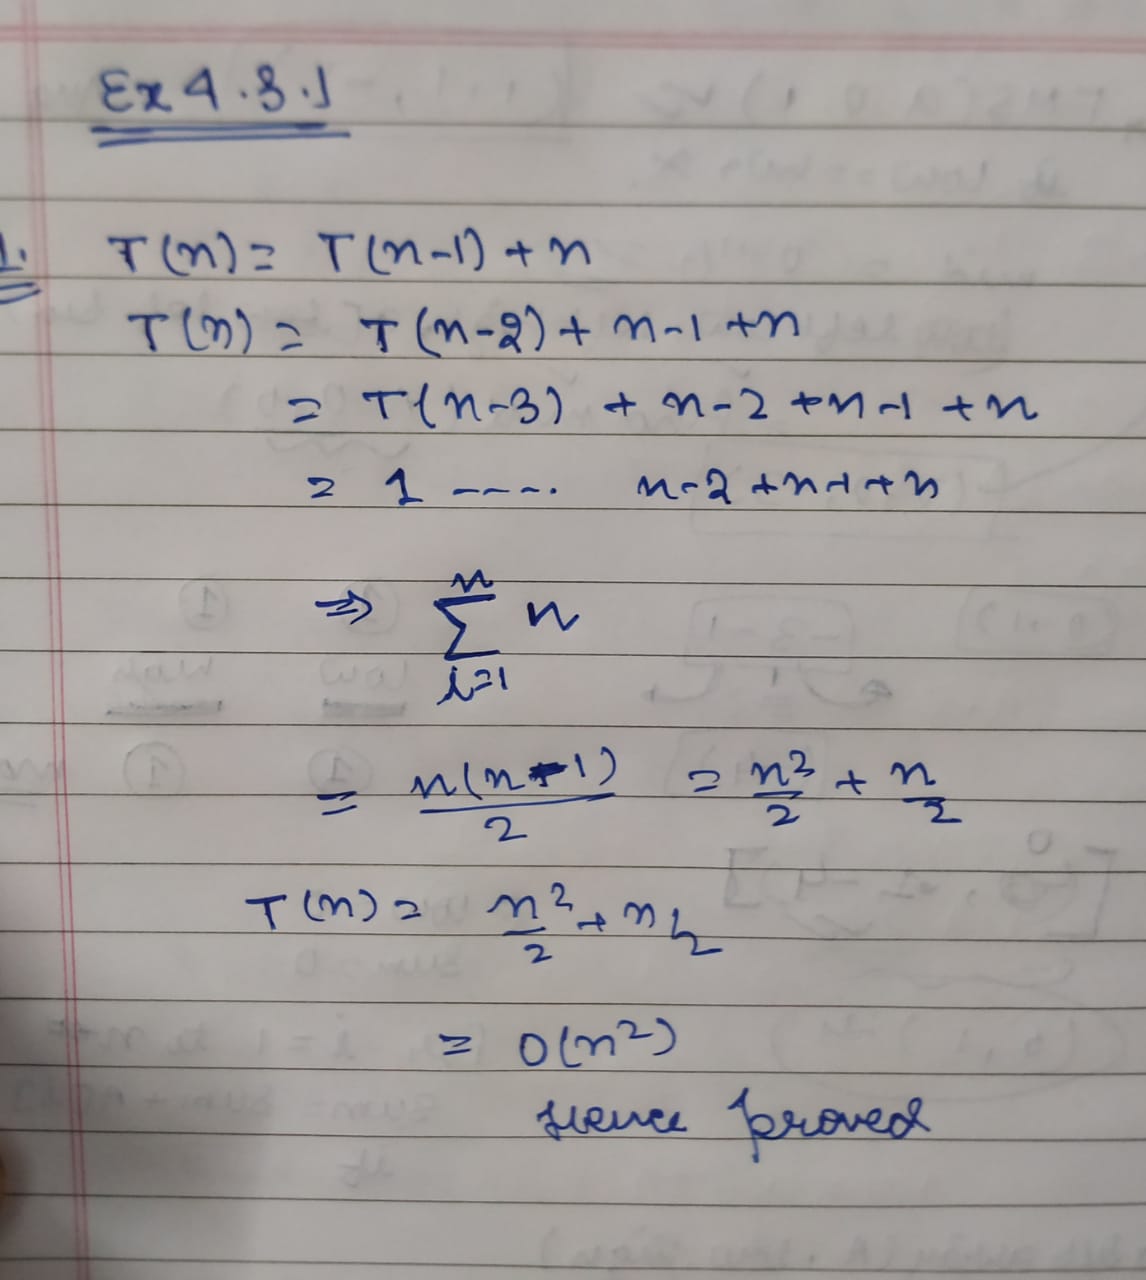 Ex 4.3.1
1. T(n) = T(n-1) + n
T(n) = T(n-2) + n-1 + n
= T(n-3) + n-2 + n-1 + n
= 1 ----. n-2 + n-1 + n
⇒ \sum_{i=1}^{n} n
= n(n+1)/2 = n²/2 + n/2
T(n) = n²/2 + n/2
= O(n²)
Hence proved